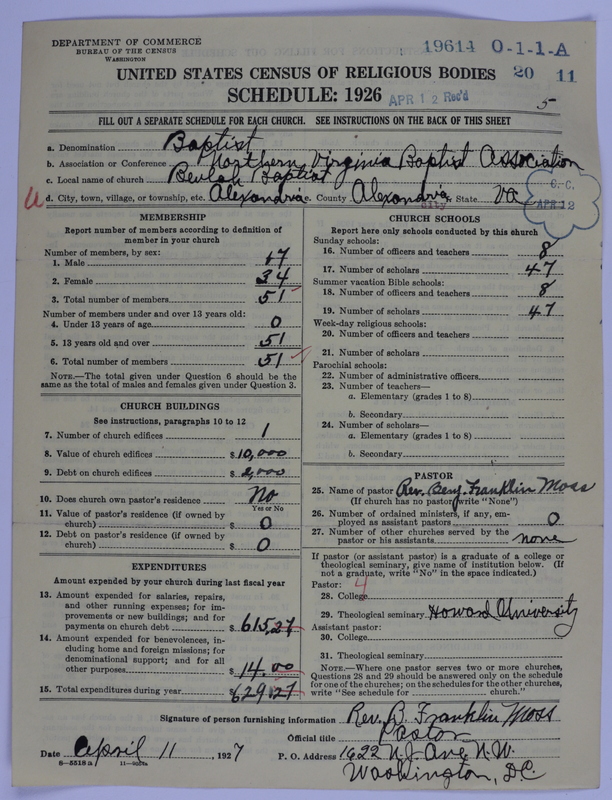 DEPARTMENT OF COMMERCE
BUREAU OF THE CENSUS
WASHINGTON
19614 0-1-1-A
20 11
UNITED STATES CENSUS OF RELIGIOUS BODIES
SCHEDULE: 1926
APR 12 Rec'd
5
FILL OUT A SEPARATE SCHEDULE FOR EACH CHURCH. SEE INSTRUCTIONS ON THE BACK OF THIS SHEET
a. Denomination Baptist
b. Association or Conference Northern Virginia Baptist Association
c. Local name of church Beulah Baptist
d. City, town, village, or township, etc. Alexandria e. County Alexandria City State Va
C. C.
APR 12
MEMBERSHIP
Report number of members according to definition of
member in your church
Number of members, by sex:
1. Male 17
2. Female 34
3. Total number of members 51
Number of members under and over 13 years old:
4. Under 13 years of age 0
5. 13 years old and over 51
6. Total number of members 51
NOTE.—The total given under Question 6 should be the
same as the total of males and females given under Question 3.
CHURCH BUILDINGS
See instructions, paragraphs 10 to 12
7. Number of church edifices 1
8. Value of church edifices $ 10,000
9. Debt on church edifices $ 2,000
10. Does church own pastor's residence No
Yes or No
11. Value of pastor's residence (if owned by
church) $ 0
12. Debt on pastor's residence (if owned by
church) $ 0
EXPENDITURES
Amount expended by your church during last fiscal year
13. Amount expended for salaries, repairs,
and other running expenses; for im-
provements or new buildings; and for
payments on church debt $ 615,27
14. Amount expended for benevolences, in-
cluding home and foreign missions; for
denominational support; and for all
other purposes $ 14.00
15. Total expenditures during year $ 629.27
CHURCH SCHOOLS
Report here only schools conducted by this church
Sunday schools:
16. Number of officers and teachers 8
17. Number of scholars 47
Summer vacation Bible schools:
18. Number of officers and teachers 8
19. Number of scholars 47
Week-day religious schools:
20. Number of officers and teachers
21. Number of scholars
Parochial schools:
22. Number of administrative officers
23. Number of teachers—
a. Elementary (grades 1 to 8)
b. Secondary
24. Number of scholars—
a. Elementary (grades 1 to 8)
b. Secondary
PASTOR
25. Name of pastor Rev. Benj. Franklin Moss
(If church has no pastor write "None")
26. Number of ordained ministers, if any, em-
ployed as assistant pastors 0
27. Number of other churches served by the
pastor or his assistants none
If pastor (or assistant pastor) is a graduate of a college or
theological seminary, give name of institution below. (If
not a graduate, write "No" in the space indicated.)
Pastor: 4
28. College
29. Theological seminary Howard University
Assistant pastor:
30. College
31. Theological seminary
NOTE.—Where one pastor serves two or more churches,
Questions 28 and 29 should be answered only on the schedule
for one of the churches; on the schedules for the other churches,
write "See schedule for church."
Signature of person furnishing information Rev. B. Franklin Moss
Official title Pastor
Date April 11, 1927 P. O. Address 1622 N.J. Ave N.W.
8—5518a
Washington, D.C.